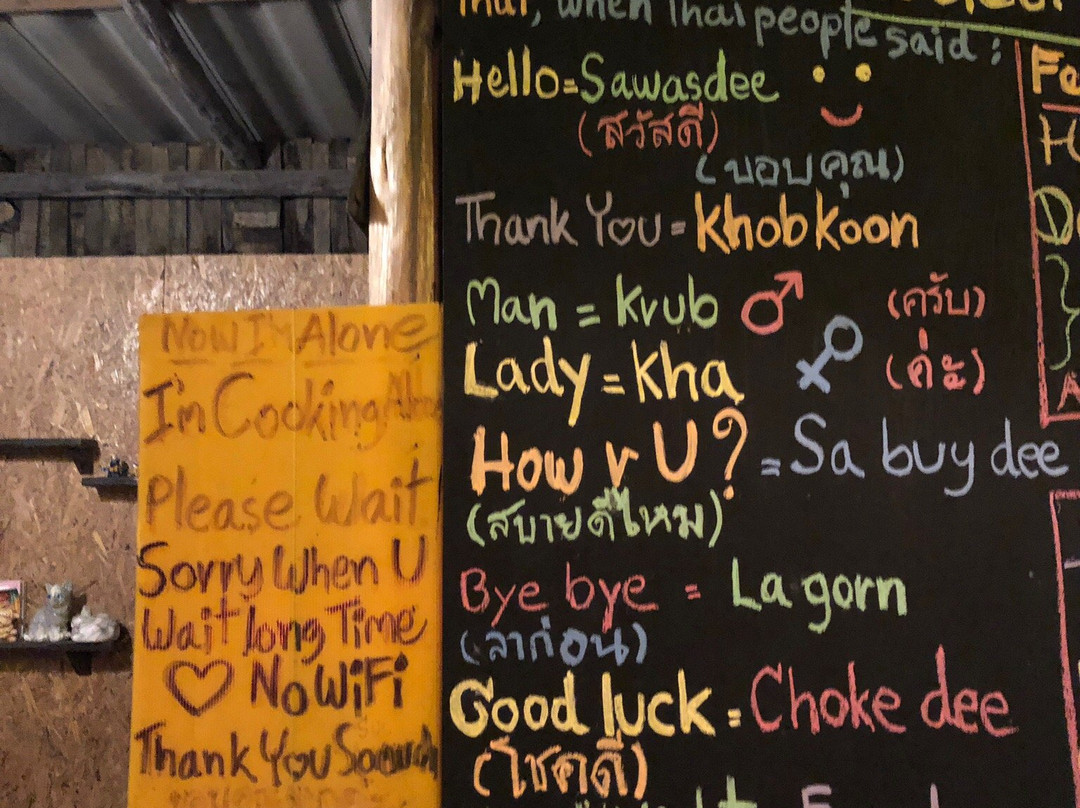 Now I'm Alone
I'm Cooking
Please Wait
Sorry When U
Wait long Time
♡ No WiFi
Thank You
Thai, when Thai people said:
Hello = Sawasdee
(สวัสดี)
(ขอบคุณ)
Thank You = Khob koon
Man = Krub ♂ (ครับ)
Lady = Kha ♀ (ค่ะ)
How r U? = Sa buy dee
(สบายดีไหม)
Bye bye = La gorn
(ลาก่อน)
Good luck = Choke dee
(โชคดี)